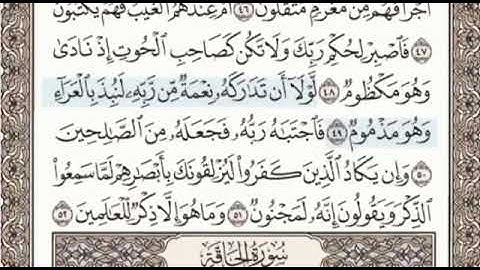 أَجْرًا فَهُم مِّن مَّغْرَمٍ مُّثْقَلُونَ ٤٦ أَمْ عِندَهُمُ ٱلْغَيْبُ فَهُمْ يَكْتُبُونَ
٤٧ فَٱصْبِرْ لِحُكْمِ رَبِّكَ وَلَا تَكُن كَصَاحِبِ ٱلْحُوتِ إِذْ نَادَىٰ
وَهُوَ مَكْظُومٌ ٤٨ لَّوْلَآ أَن تَدَٰرَكَهُۥ نِعْمَةٌ مِّن رَّبِّهِۦ لَنُبِذَ بِٱلْعَرَآءِ
وَهُوَ مَذْمُومٌ ٤٩ فَٱجْتَبَٰهُ رَبُّهُۥ فَجَعَلَهُۥ مِنَ ٱلصَّٰلِحِينَ
٥٠ وَإِن يَكَادُ ٱلَّذِينَ كَفَرُوا۟ لَيُزْلِقُونَكَ بِأَبْصَٰرِهِمْ لَمَّا سَمِعُوا۟
ٱلذِّكْرَ وَيَقُولُونَ إِنَّهُۥ لَمَجْنُونٌ ٥١ وَمَا هُوَ إِلَّا ذِكْرٌ لِّلْعَٰلَمِينَ ٥٢
سُورَةُ الحَاقَّةِ